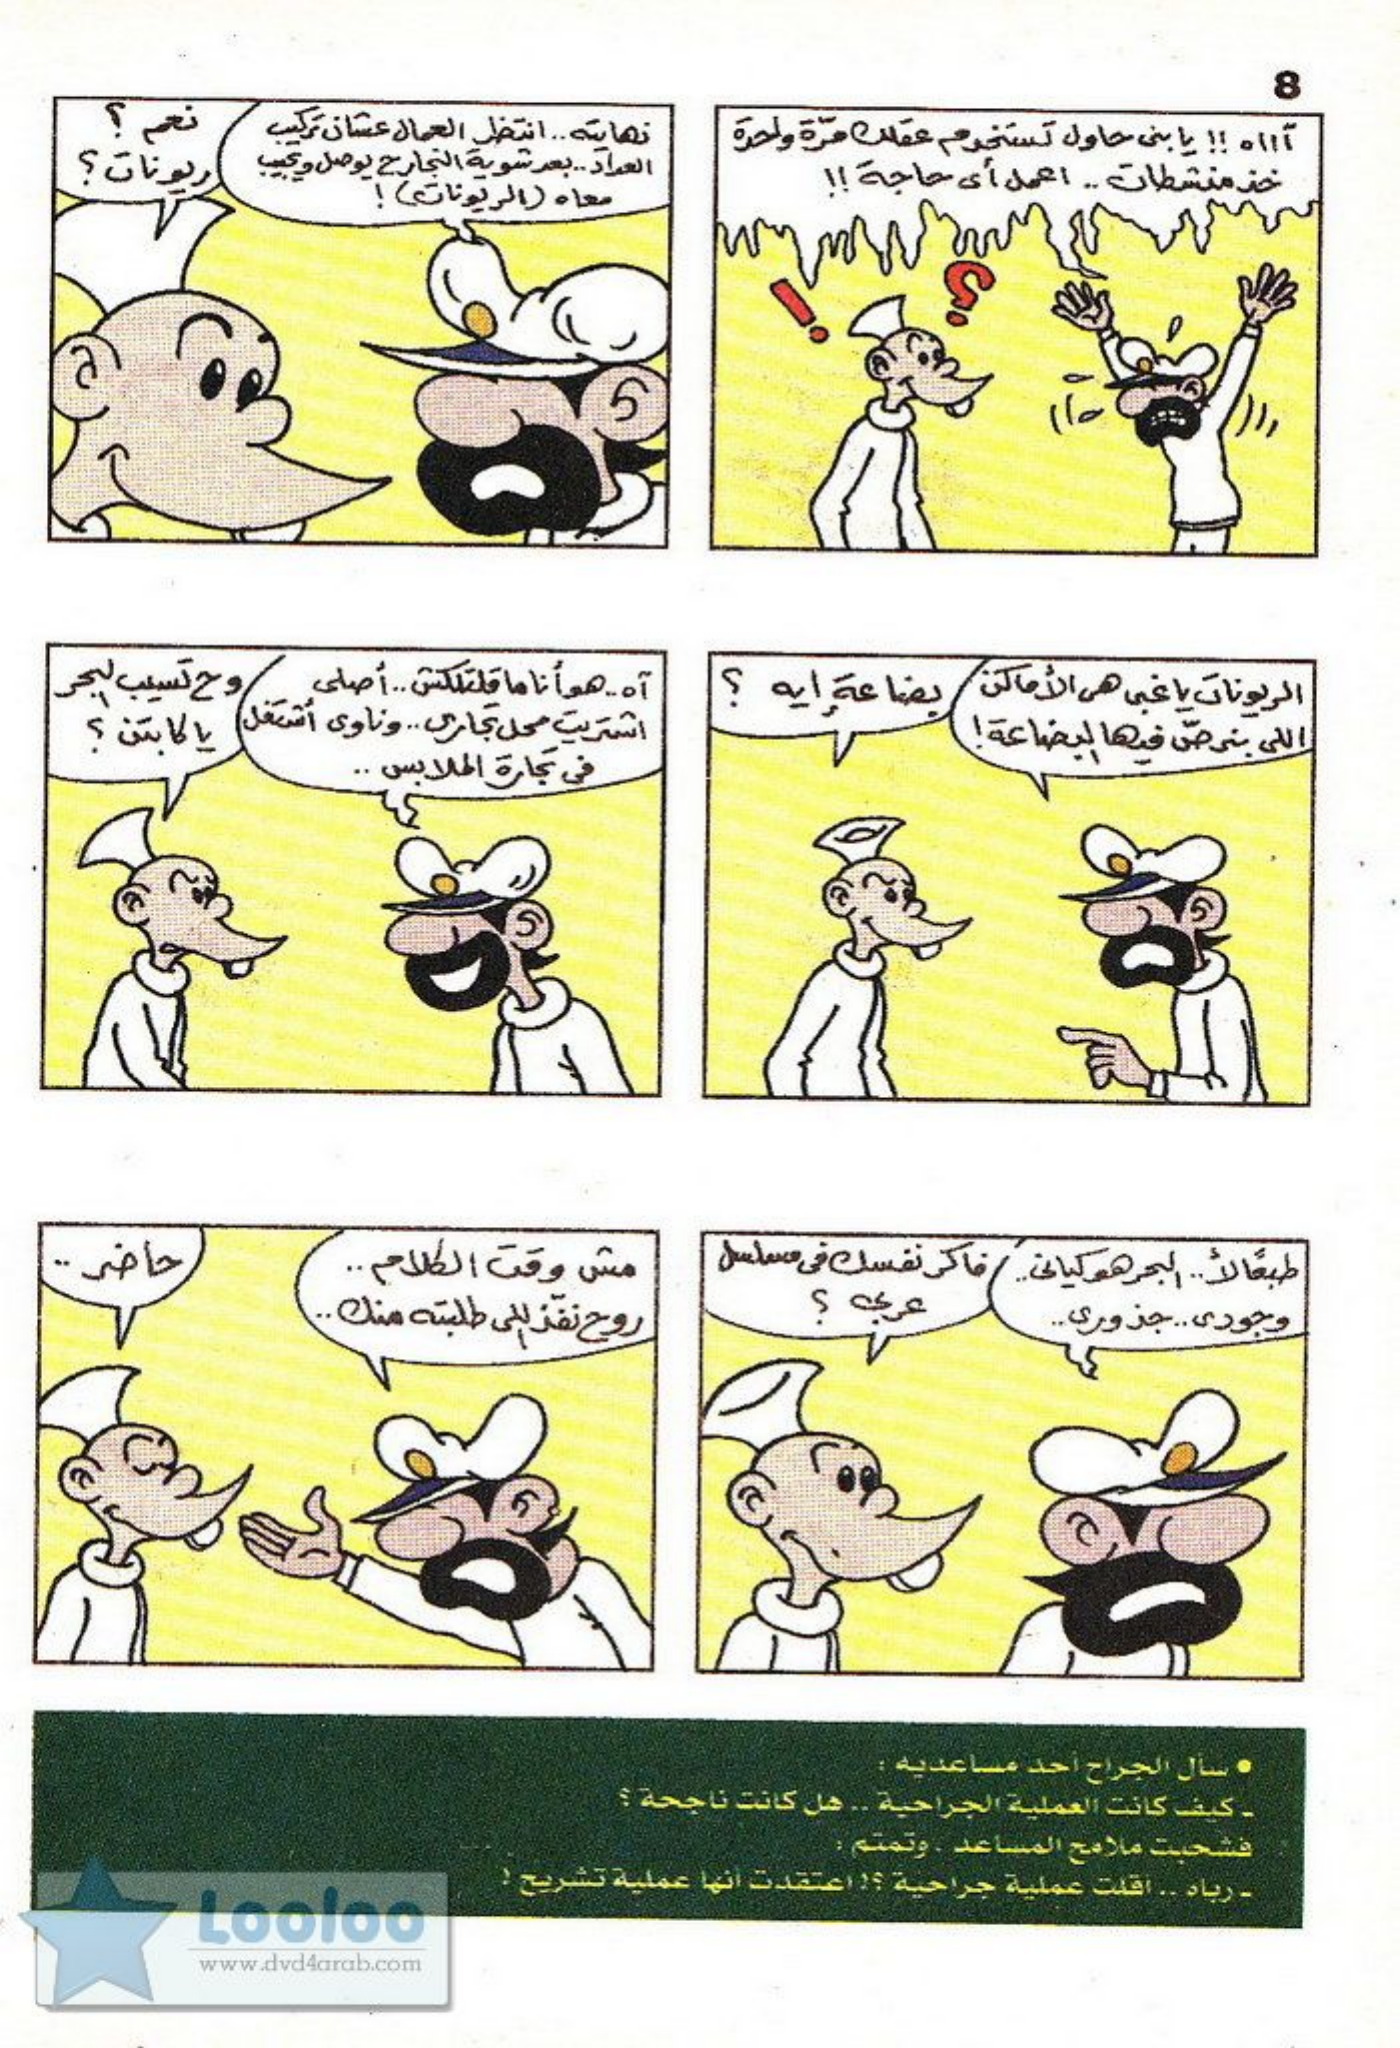 8
آااه !! يا بنى حاول تستخدم عقلك مرّة واحدة
خذ منشطات .. اعمل أى حاجة !!
نهايته .. انتظر العمال عشان تركيب
العداد .. بعد شوية النجار ح يوصل ويجيب
معاه (الريونات) !
نعم ؟
ريونات ؟
الريونات يا غبى هى الأماكن
اللى بنرصّ فيها البضاعة !
بضاعة إيه ؟
آه .. هو أنا ما قلتلكش .. أصلى
اشتريت محل تجارى .. وناوى أشتغل
فى تجارة الملابس ..
وح تسيب البحر
يا كابتن ؟
طبعًا لأ .. البحر هو كيانى ..
وجودى .. جذورى ..
فاكر نفسك فى مسلسل
عربى ؟
مش وقت الكلام ..
روح نفّذ اللى طلبته منك ..
حاضر ..
• سأل الجراح أحد مساعديه :
ـ كيف كانت العملية الجراحية .. هل كانت ناجحة ؟
فشحبت ملامح المساعد . وتمتم :
ـ رباه .. أقلت عملية جراحية ؟! اعتقدت أنها عملية تشريح !
Looloo
www.dvd4arab.com